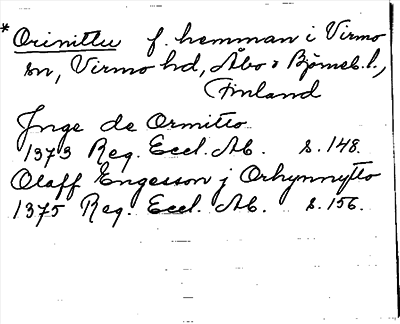 * Orinittu f. hemman i Virmo
sn, Virmo hd, Åbo o Björneb. l.,
Finland
Inge de Ormitto
1373 Reg. Eccl. Ab. s. 148.
Olaff Engesson j Orhynnytto
1375 Reg. Eccl. Ab. s. 156.